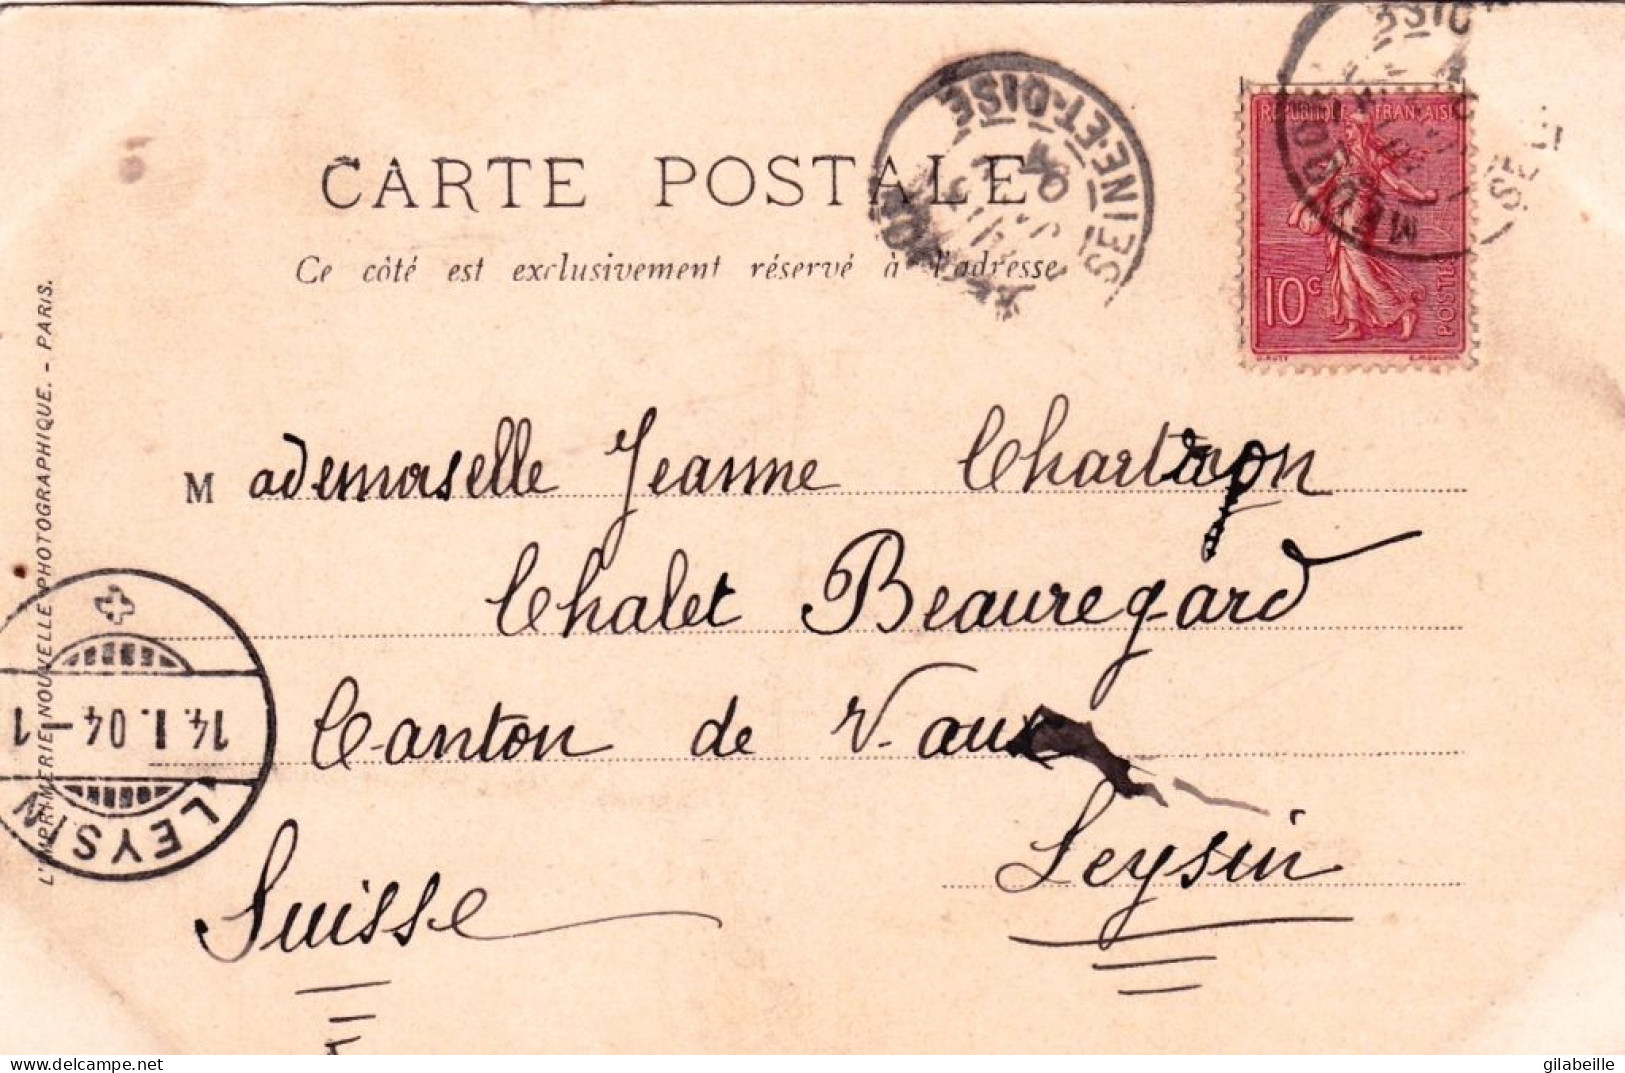 CARTE POSTALE
Ce côté est exclusivement réservé à l'adresse
SEINE-ET-OISE
04
REPUBLIQUE FRANÇAISE
10c
POSTES
O.ROTY
E.MOUCHON
Mademoiselle Jeanne
Chalet Beauregard
Canton de Vaux
Leysin
Suisse
14.I.04-1
LEYSIN
L'IMPRIMERIE NOUVELLE PHOTOGRAPHIQUE. - PARIS.
https://www.delcampe.net
gilabeille